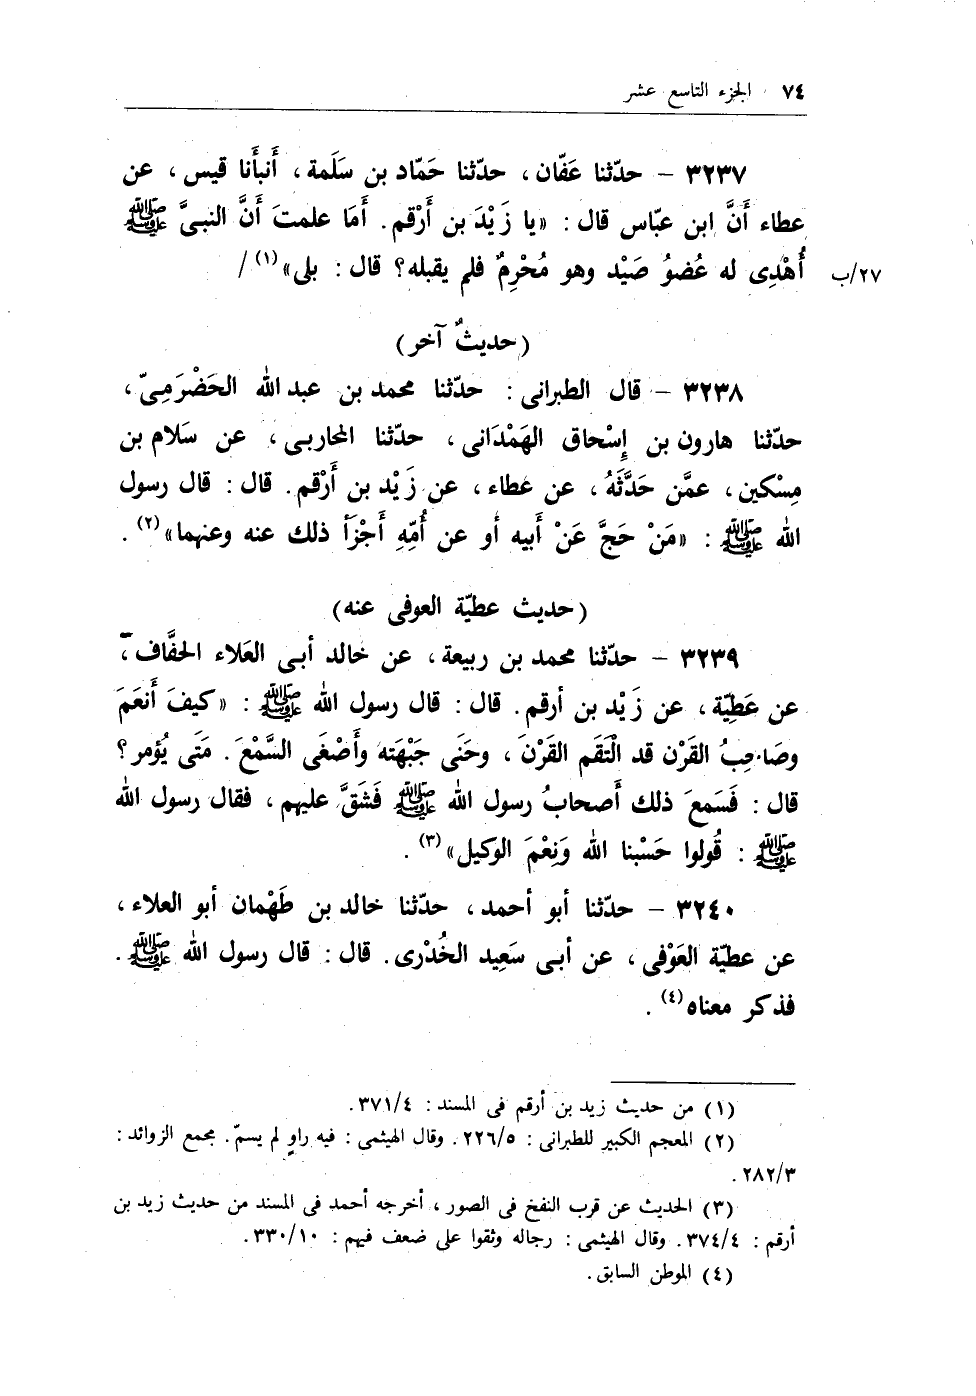 ٧٤ الجزء التاسع عشر
٣٢٣٧ – حدّثنا عَفّان، حدّثنا حَمّاد بن سَلَمة، أَنبأَنا قيس، عن
عطاء أَنَّ ابن عبّاس قال: «يا زَيْدَ بن أَرْقم. أَمَا علمتَ أَنَّ النبىَّ ﷺ
أُهْدِى له عُضوُ صَيْد وهو مُحْرِمٌ فلم يقبله؟ قال: بلى»(١) /
٢٧/ب
(حديثٌ آخر)
٣٢٣٨ – قال الطبرانى: حدّثنا محمد بن عبد الله الحَضْرَمِىّ،
حدّثنا هارون بن إِسْحاق الهَمْدَانى، حدّثنا المحاربى، عن سَلام بن
مِسْكين، عمَّن حَدَّثَهُ، عن عَطاء، عن زَيْد بن أَرْقم. قال: قال رسول
الله ﷺ: «مَنْ حَجَّ عَنْ أَبيه أو عن أُمِّهِ أَجْزَأ ذلك عنه وعنهما»(٢).
(حديث عطيّة العوفى عنه)
٣٢٣٩ – حدّثنا محمد بن ربيعة، عن خالد أبى العَلاء الخفَّاف،
عن عَطِيّة، عن زَيْد بن أرقم. قال: قال رسول الله ﷺ: «كيفَ أَنعَمَ
وصَاحِبُ القَرْن قد الْتَقَم القَرْنَ، وحَنَى جَبْهَته وأَصْغَى السَّمْعَ. مَتَى يُؤمر؟
قال: فَسَمعَ ذلك أَصحابُ رسول الله ﷺ فَشَقَّ عليهم، فقال رسول الله
ﷺ: قُولوا حَسْبنا الله وَنِعْمَ الوكيل»(٣).
٣٢٤٠ – حدّثنا أبو أحمد، حدّثنا خالد بن طَهْمان أبو العلاء،
عن عطيّة العَوْفى، عن أبى سَعِيد الخُدْرى. قال: قال رسول الله ﷺ.
فذكر معناه(٤).
(١) من حديث زيد بن أرقم فى المسند: ٣٧١/٤.
(٢) المعجم الكبير للطبرانى: ٢٢٦/٥. وقال الهيثمى: فيه راوٍ لم يسمّ. مجمع الزوائد:
٢٨٢/٣.
(٣) الحديث عن قرب النفخ فى الصور، أخرجه أحمد فى المسند من حديث زيد بن
أرقم: ٣٧٤/٤. وقال الهيثمى: رجاله وثقوا على ضعف فيهم: ٣٣٠/١٠.
(٤) الموطن السابق.